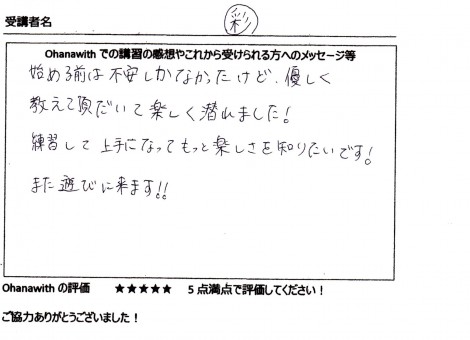 受講者名 彩
Ohanawith での講習の感想やこれから受けられる方へのメッセージ等
始める前は不安しかなかったけど、優しく
教えて頂だいて楽しく潜れました!
練習して上手になってもっと楽しさを知りたいです!
また遊びに来ます!!
Ohanawith の評価 ★★★★★ 5 点満点で評価してください!
ご協力ありがとうございました!